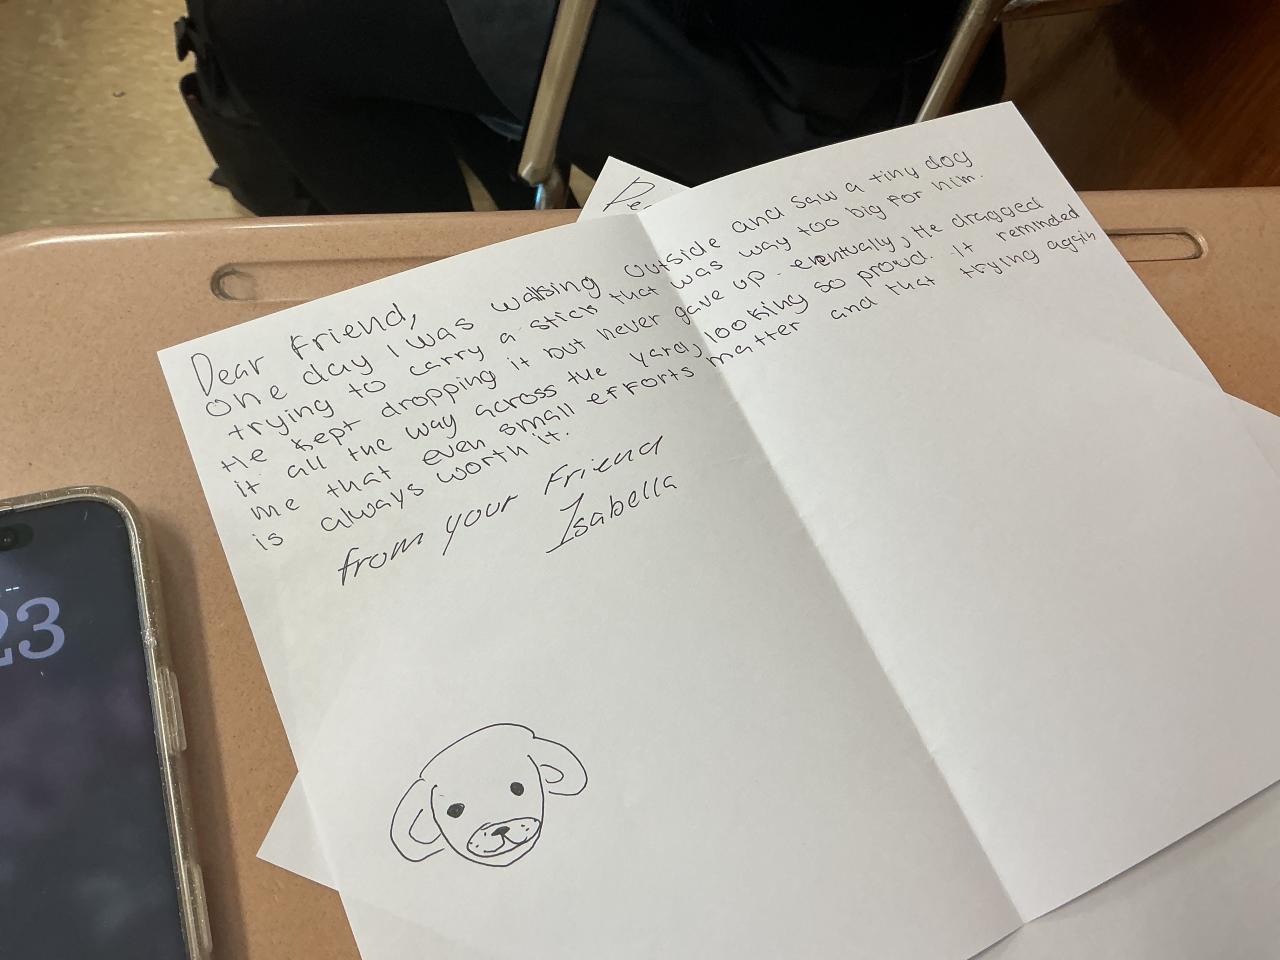 Dear Friend,
One day I was walking outside and saw a tiny dog
trying to carry a stick that was way too big for him.
He kept dropping it but never gave up. eventually, He dragged
it all the way across the yard, looking so proud. It reminded
me that even small efforts matter and that trying again
is always worth it.
from your Friend
Isabella
De
23